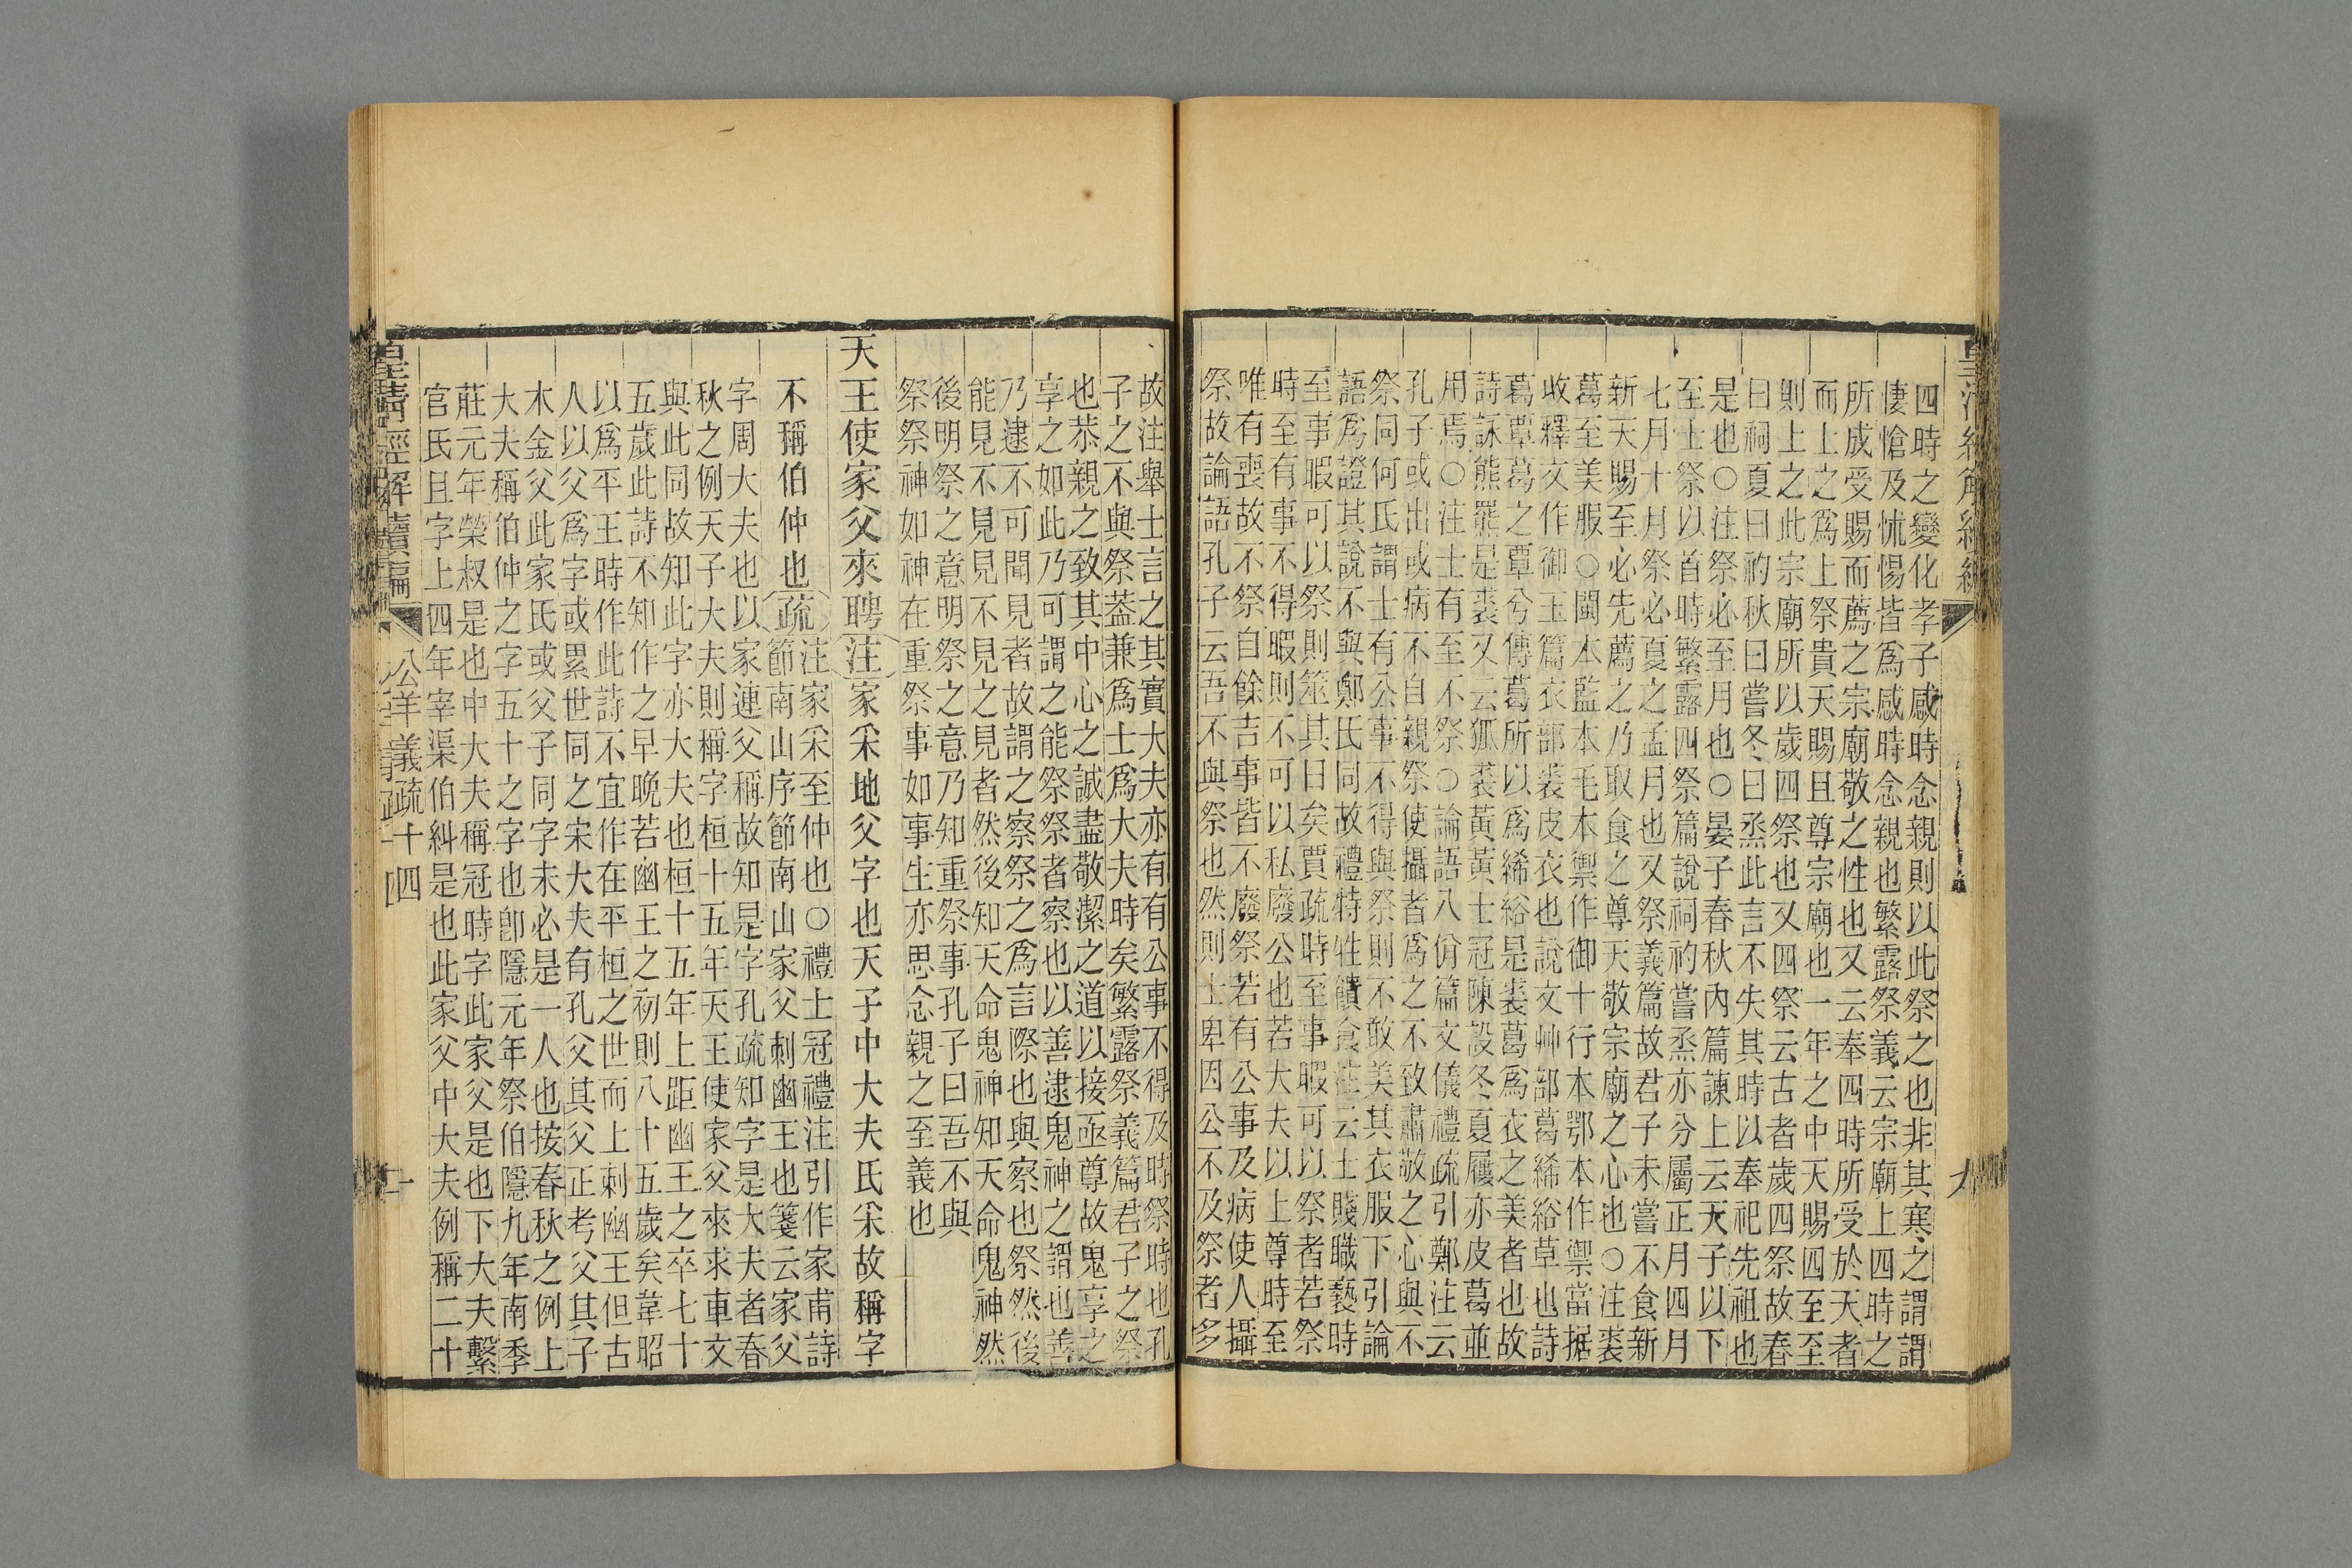 四時之變化孝子感時念親則以此祭之也非其寒之謂謂
悽愴及怵惕皆爲感時念親也繁露祭義云宗廟上四時之
所成受賜而薦之宗廟敬之性也又云奉四時所受於天者
而上之爲上祭貴天賜且尊宗廟也一年之中天賜四至至
則上之此宗廟所以歲四祭也又四祭云古者歲四祭故春
曰祠夏曰礿秋曰嘗冬曰烝此言不失其時以奉祀先祖也
是也○注祭必至月也○晏子春秋內篇諫上云天子以下
至士祭以首時繁露四祭篇說祠礿嘗烝亦分屬正月四月
七月十月祭必夏之孟月也又祭義篇故君子未嘗不食新
新天賜至必先薦之乃取食之尊天敬宗廟之心也○注裘
葛至美服○閩本監本毛本禦作御十行本鄂本作禦當據
收釋文作御玉篇衣部裘皮衣也說文艸部葛絺綌草也詩
葛覃葛之覃兮傳葛所以爲絺綌是裘葛爲衣之美者也故
詩詠熊羆是裘又云狐裘黃黃士冠陳設冬夏屨亦皮葛並
用焉○注士有至不祭○論語八佾篇文儀禮疏引鄭注云
孔子或出或病不自親祭使攝者爲之不致肅敬之心與不
祭同何氏謂士有公事不得與祭則不敢美其衣服下引論
語爲證其說不與鄭氏同故禮特牲饋食注云士賤職褻時
至事暇可以祭則筮其日矣賈疏時至事暇可以祭者若祭
時至有事不得暇則不可以私廢公也若大夫以上尊時至
唯有喪故不祭自餘吉事皆不廢祭若有公事及病使人攝
祭故論語孔子云吾不與祭也然則士卑因公不及祭者多
故注舉士言之其實大夫亦有有公事不得及時祭時也孔
子之不與祭葢兼爲士爲大夫時矣繁露祭義篇君子之祭
也恭親之致其中心之誠盡敬潔之道以接亟尊故鬼享之
享之如此乃可謂之能祭祭者察也以善逮鬼神之謂也善
乃逮不可聞見者故謂之察祭之爲言際也與察也祭然後
能見不見見不見之見者然後知天命鬼神知天命鬼神然
後明祭之意明祭之意乃知重祭事孔子曰吾不與
祭祭神如神在重祭事如事生亦思念親之至義也
天王使家父來聘注家采地父字也天子中大夫氏采故稱字
不稱伯仲也疏注家采至仲也○禮士冠禮注引作家甫詩
節南山序節南山家父刺幽王也箋云家父
字周大夫也以家連父稱故知是字孔疏知字是大夫者春
秋之例天子大夫則稱字桓十五年天王使家父來求車文
與此同故知此字亦大夫也桓十五年上距幽王之卒七十
五歲此詩不知作之早晚若幽王之初則八十五歲矣韋昭
以爲平王時作此詩不宜作在平桓之世而上刺幽王但古
人以父爲字或累世同之宋大夫有孔父其父正考父其子
木金父此家氏或父子同字未必是一人也按春秋之例上
大夫稱伯仲之字五十之字也卽隱元年祭伯隱九年南季
莊元年榮叔是也中大夫稱冠時字此家父是也下大夫繫
官氏且字上四年宰渠伯糾是也此家父中大夫例稱二十
皇清經解續編
公羊義疏十四